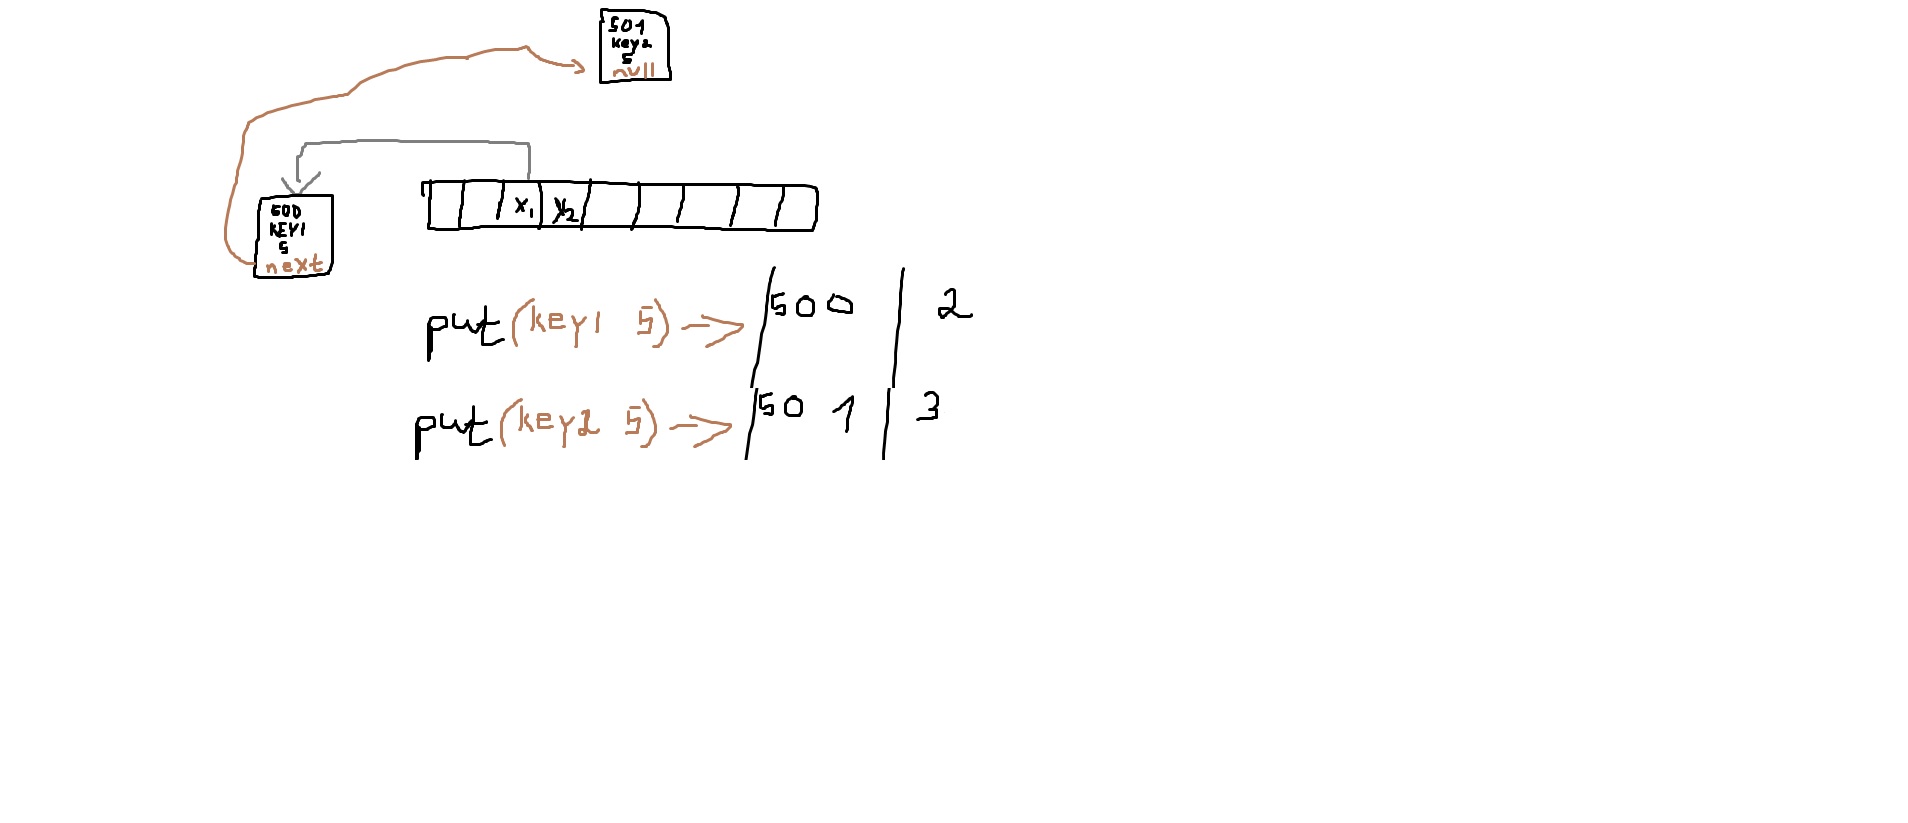 501
key2
5
null
500
KEY1
5
next
x1 y2
put(key1 5) -> |500 | 2
put(key2 5) -> |501 | 3